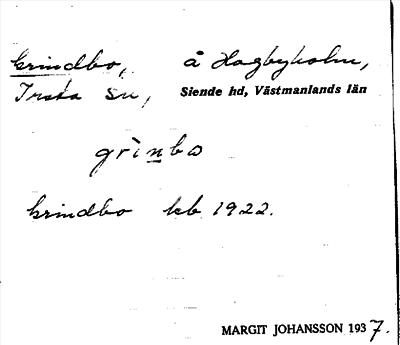 Grindbo, å Hagbyholm,
Irsta sn, Siende hd, Västmanlands län
grìnbω
Grindbo kb 1922.
MARGIT JOHANSSON 1937.